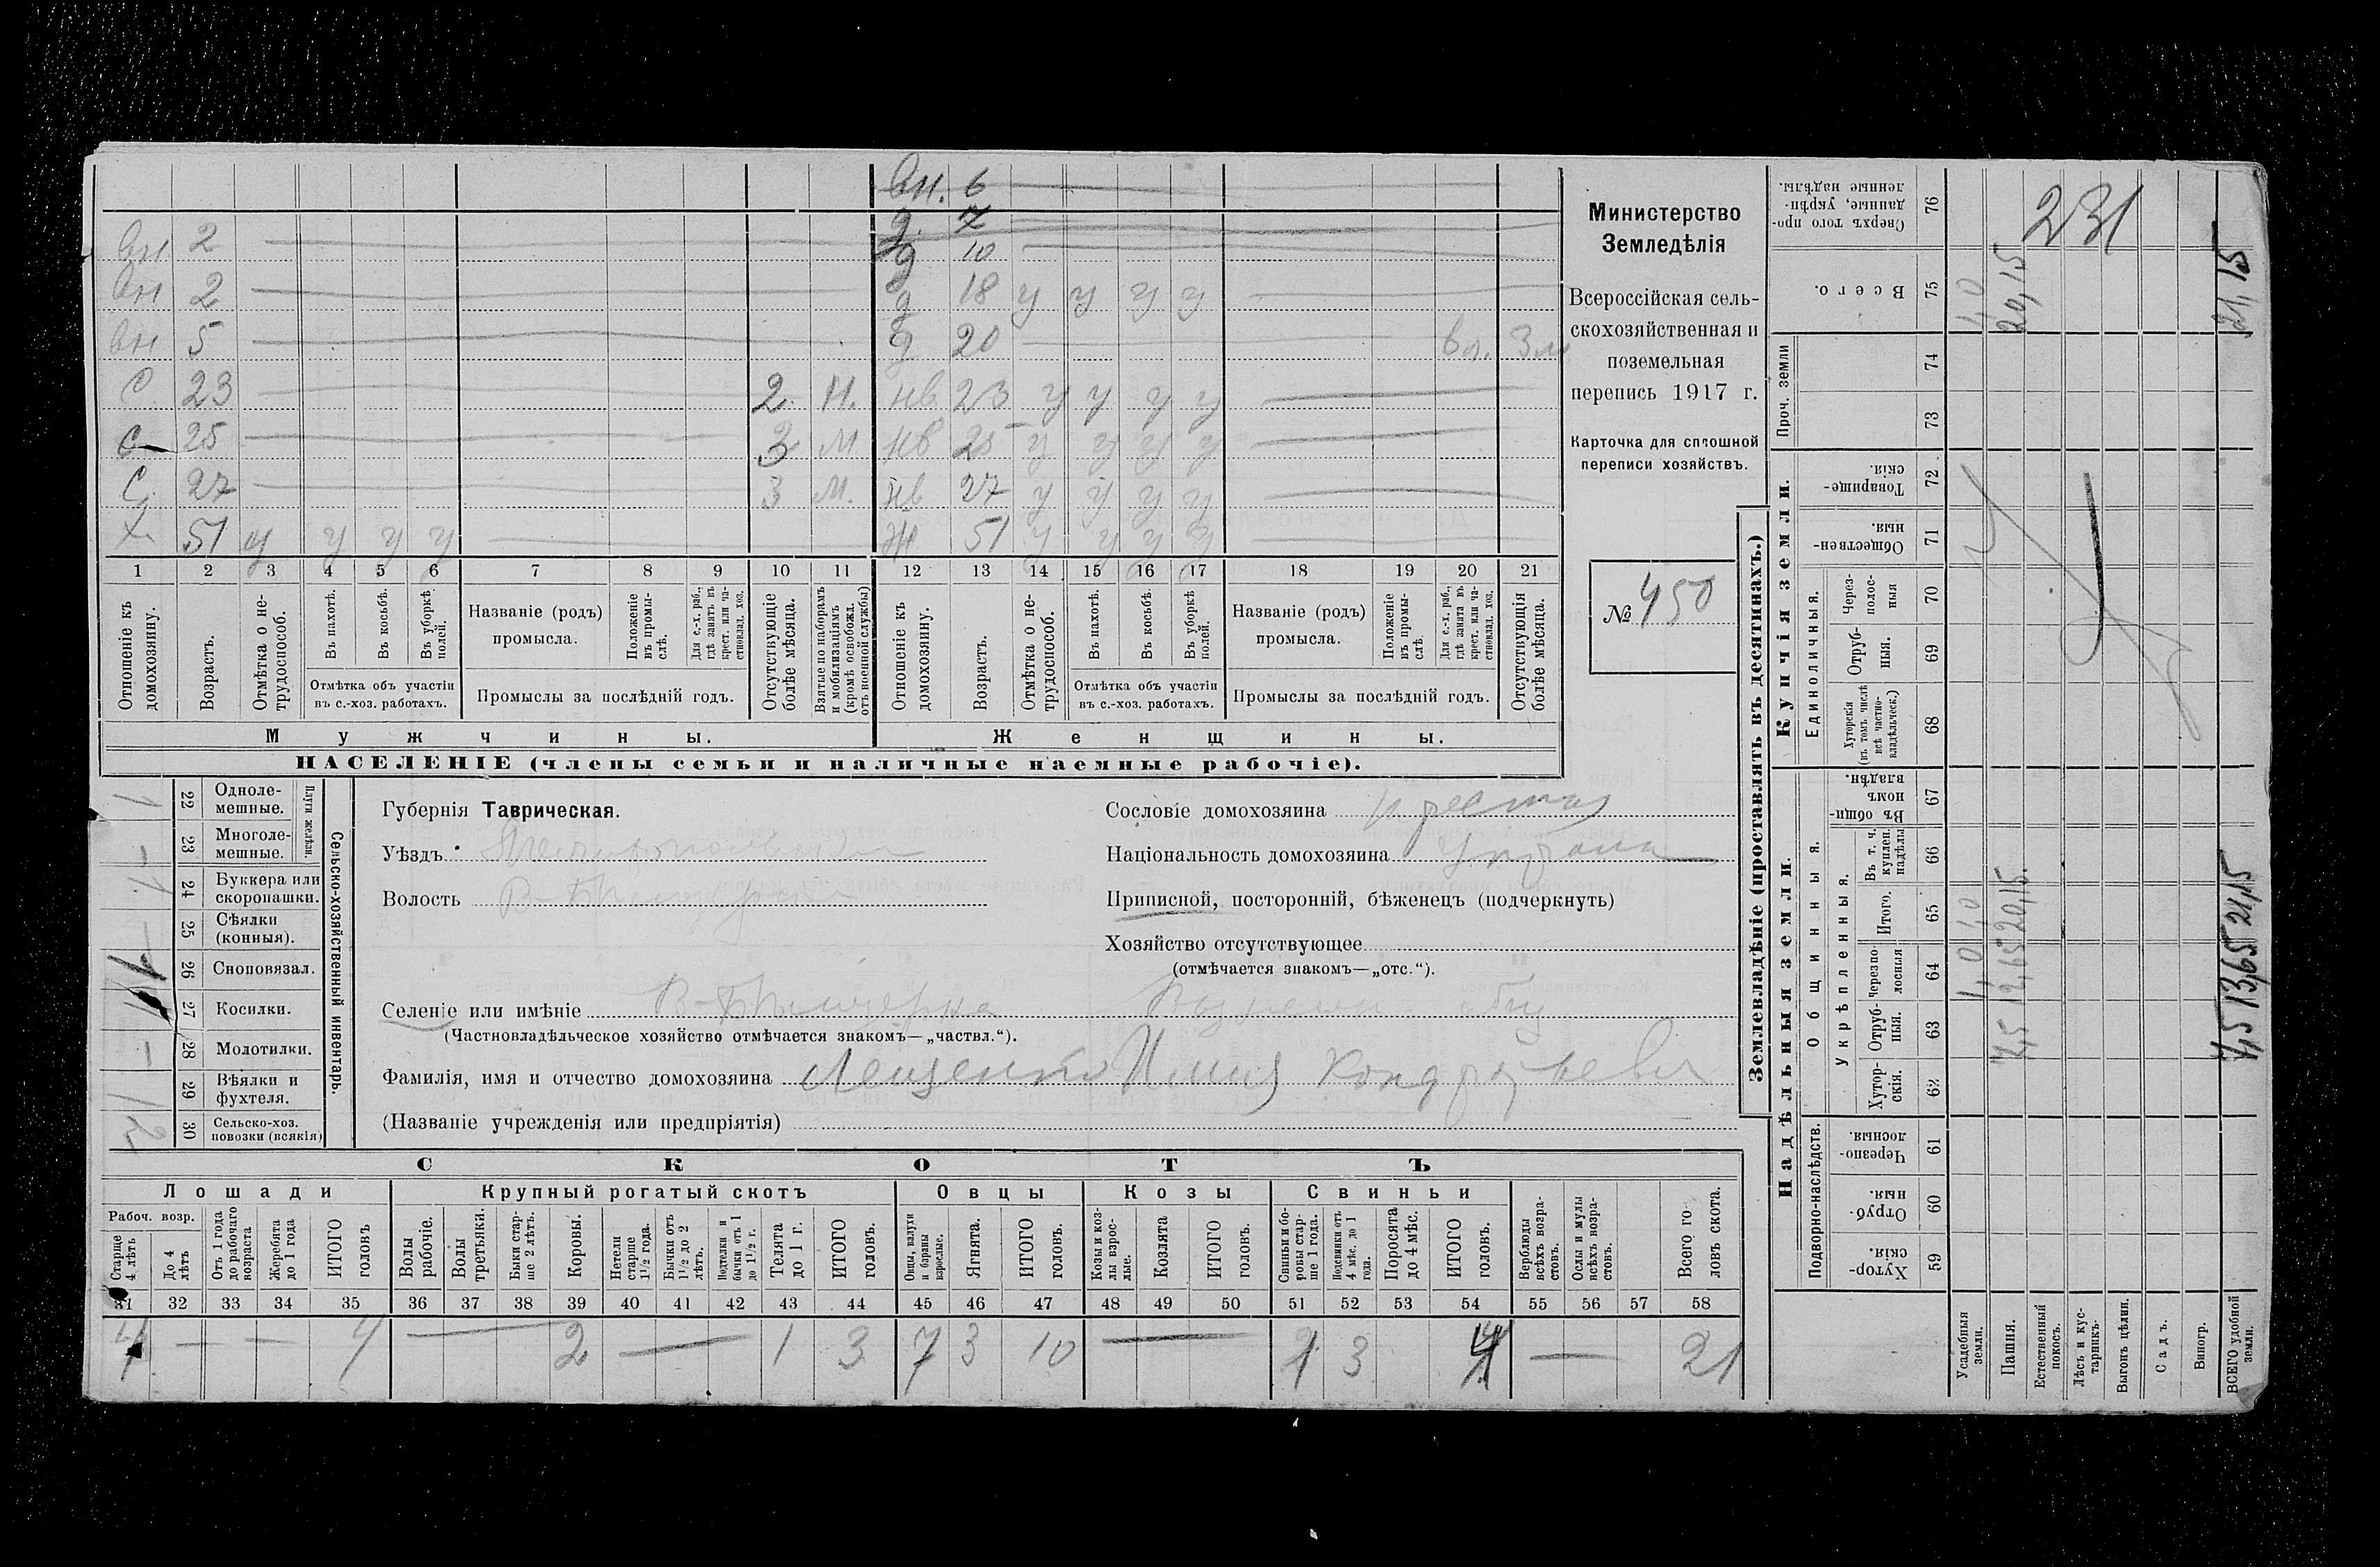 вн. 6
д. 7
вн 2
д 10
вн 2 д 18 у у у у
вн 5 д 20 3 м
С 23 2 Н. нв 23 у у у у
С 25 3 М нв 25 у у у у
С. 27 3 М. нв 27 у у у у
Х 51 у у у у Ж 51 у у у у
1 2 3 4 5 6 7 8 9 10 11 12 13 14 15 16 17 18 19 20 21
Отношеніе къ домохозяину.
Возрастъ.
Отмѣтка о не-
трудоспособ.
Въ пахотѣ.
Въ косьбѣ.
Въ уборкѣ полей.
Отмѣтка объ участіи
въ с.-хоз. работахъ.
Названіе (родъ)
промысла.
Положеніе
въ промы-
слѣ.
Для с.-х. раб.,
гдѣ занятъ въ
крест. или ча-
стновлад. хоз.
Промыслы за послѣдній годъ.
Отсутствующіе
болѣе мѣсяца.
Взятые по наборамъ
и мобилизаціямъ
(кромѣ освобожд.
отъ военной службы)
Отношеніе къ
домохозяину.
Возрастъ.
Отмѣтка о не-
трудоспособ.
Въ пахотѣ.
Въ косьбѣ.
Въ уборкѣ
полей.
Отмѣтка объ участіи
въ с.-хоз. работахъ.
Названіе (родъ)
промысла.
Положеніе
въ промы-
слѣ.
Для с.-х. раб.,
гдѣ занята въ
крест. или ча-
стновлад. хоз.
Промыслы за послѣдній годъ.
Отсутствующія
болѣе мѣсяца.
Мужчины. Женщины.
НАСЕЛЕНІЕ (члены семьи и наличные наемные рабочіе).
Министерство
Земледѣлія
Всероссійская сель-
скохозяйственная и
поземельная
перепись 1917 г.
Карточка для сплошной
переписи хозяйствъ.
№ 450
Сельско-хозяйственный инвентарь.
Плуги желѣзн.
1 22 Одноле-
мешные.
– 23 Многоле-
мешные.
1 24 Буккера или
скоропашки.
– 25 Сѣялки
(конныя).
26 Сноповязал.
27 Косилки.
– 28 Молотилки.
1 29 Вѣялки и
фухтеля.
30 Сельско-хоз.
повозки (всякія)
Губернія Таврическая.
Уѣздъ
Волость
Сословіе домохозяина
Національность домохозяина
Приписной, посторонній, бѣженецъ (подчеркнуть)
Хозяйство отсутствующее
(отмѣчается знакомъ—„отс.“).
Селеніе или имѣніе
(Частновладѣльческое хозяйство отмѣчается знакомъ—„частвл.“).
Фамилія, имя и отчество домохозяина Лещенко
(Названіе учрежденія или предпріятія)
СКОТЪ
Лошади Крупный рогатый скотъ Овцы Козы Свиньи
Рабоч. возр.
Старше
4 лѣтъ
До 4
лѣтъ
Отъ 1 года
до рабочаго
возраста
Жеребята
до 1 года
ИТОГО
головъ
Волы
рабочіе.
Волы
третьяки.
Быки стар-
ше 2 лѣтъ.
Коровы.
Нетели
старше
1½ года.
Бычки отъ
1½ до 2
лѣтъ.
Подтелки и
бычки отъ 1
до 1½ г.
Телята
до 1 г.
ИТОГО
головъ.
Овцы, валухи
и бараны
взрослые.
Ягнята.
ИТОГО
головъ.
Козы и коз-
лы взрос-
лые.
Козлята
ИТОГО
головъ.
Свиньи и бо-
ровы стар-
ше 1 года.
Подсвинки отъ
4 мѣс. до 1
года.
Поросята
до 4 мѣс.
ИТОГО
головъ.
Верблюды
всѣхъ возра-
стовъ.
Ослы и мулы
всѣхъ возра-
стовъ.
Всего го-
ловъ скота.
31 32 33 34 35 36 37 38 39 40 41 42 43 44 45 46 47 48 49 50 51 52 53 54 55 56 57 58
4 — — — 4 — 2 — 1 3 7 3 10 — 1 3 4 — 21
Землевладѣніе (проставлять въ десятинахъ.)
Надѣльныя земли. Купчія земли.
Подворно-наслѣдств.
Общинныя.
Укрѣпленныя.
Единоличныя.
Проч. земли
Сверхъ того про-
данные, укрѣп-
ленные надѣлы. 76
Всего. 75
74
73
Товарище-
скія. 72
Обществен-
ныя. 71
Через-
полос-
ныя 70
Отруб-
ныя. 69
Хуторскія
(въ томъ числѣ
всѣ частно-
владѣльческ.) 68
Въ общин-
номъ
владѣн. 67
Въ т. ч.
куплен.
надѣлы 66
Итого. 65
Черезпо-
лосныя 64
Отруб-
ныя. 63
Хутор-
скія. 62
Черезпо-
лосныя. 61
Отруб-
ныя. 60
Хутор-
скія. 59
231
Усадебныя
земли. 1,0 1,0 1,0
Пашня. 7,5 12,65 20,15 20,15
Естественный
покосъ.
Лѣсъ и кус-
тарникъ.
Выгонъ цѣлин.
Садъ.
Виногр.
ВСЕГО удобной
земли. 7,5 13,65 21,15 21,15